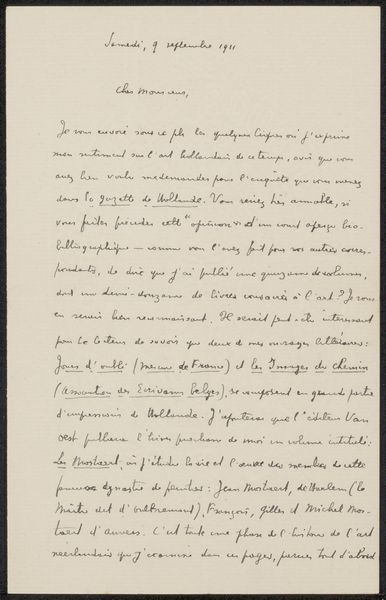 Samedi, 9 septembre 1911
Cher Monsieur,
Je vous envoie sous ce pli les quelques lignes où j'exprime
mon sentiment sur l'art hollandais de ce temps, avis que vous
avez bien voulu me demander pour l'enquête que vous menez
dans la gazette de Hollande. Vous seriez très aimable, si
vous faites précéder cette "opinion" d'un court aperçu bio-
bibliographique – comme vous l'avez fait pour vos autres corres-
pondants, de dire que j'ai publié une quinzaine de volumes,
dont une demi-douzaine de livres consacrés à l'art? Je vous
en serais bien reconnaissant. Il serait peut-être intéressant
pour le lecteur de savoir que deux de mes ouvrages littéraires:
Jours d'oubli (Mercure de France) et les Images du chemin
(Association des Ecrivains belges), se composent en grande partie
d'impressions de Hollande. J'ajouterai que l'éditeur Van
Oest publiera l'hiver prochain de moi un volume intitulé:
Les Mostaert, où j'étudie la vie et l'œuvre des membres de cette
fameuse dynastie de peintres: Jean Mostaert, de Haarlem (le
Maître dit d'Oultremont), François, Gilles et Michel Mos-
taert d'Anvers. C'est toute une phase de l'histoire de l'art
néerlandais que j'examine dans ces pages, parues tout d'abord